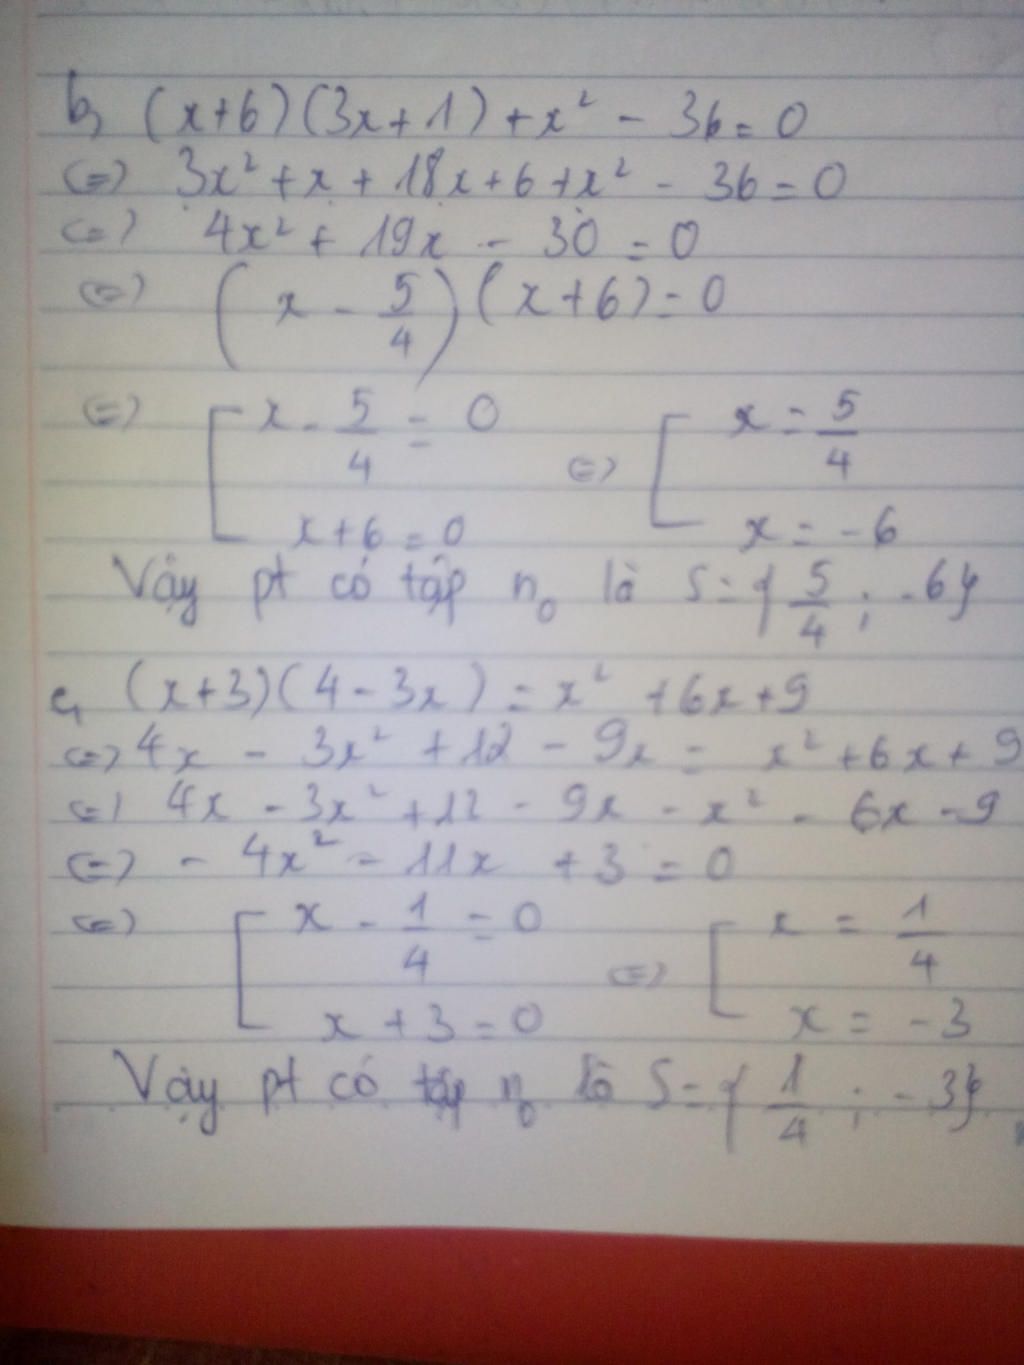 b, (x+6)(3x+1)+x² - 36=0
(=) 3x²+x+18x+6+x² - 36=0
(=) 4x² + 19x - 30 = 0
(=) (x - 5/4)(x+6)=0
(=) [ x - 5/4 = 0 (=) [ x = 5/4
x+6=0 x = -6
Vậy pt có tập n₀ là S={5/4 ; -6}
c, (x+3)(4-3x) = x² +6x+9
(=) 4x - 3x² +12 - 9x = x²+6x+9
(=) 4x - 3x² +12 - 9x - x² - 6x -9
(=) - 4x² - 11x +3 = 0
(=) [ x - 1/4 =0 (=) [ x = 1/4
x +3=0 x = -3
Vậy pt có tập n₀ là S={1/4 ; -3}